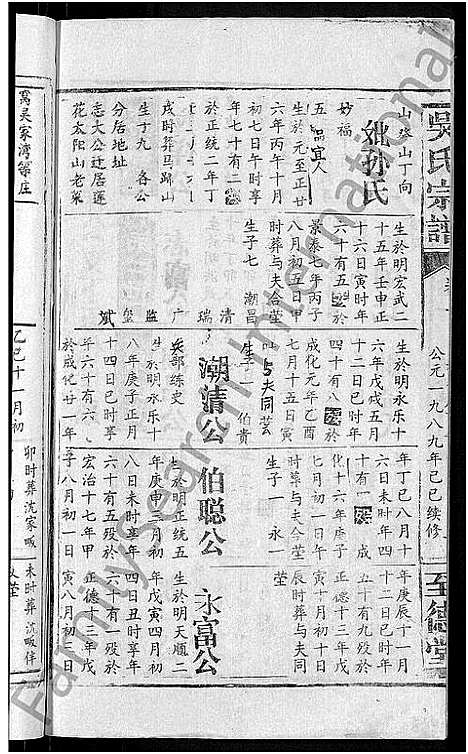 吳氏宗譜
公元一九八九年己巳续修
至德堂
山癸山丁向
妣孙氏
妙福
五品宜人
生於元至正廿
六年丙午十月
初七日午时享
年七十有二
於正统二年丁
戌时葬马跡山
生子九 各公
分居地址
志大公迁居莲
花太阳山老菜
生於明宏武二
十五年壬申正
十六日寅时年
六十有五歿於
景泰七年丙子
八月初五日申
时葬与夫合茔
生子七 潮昌
清
瑞
广
监
玺
斌
生於明永乐十
六年戊戌五月
四十有八歿於
成化元年乙酉
七月十五日寅
与夫同茔
生子一 伯贵
潮清公
生於明永乐十
八年庚子正月
十四日巳时享
年六十有六
於成化廿一年
乙巳十一月初
年丁巳八月十
六日未时年四
十有一歿 成
化十六年庚子
七月初一日午
时葬与夫合茔
生子一 永一
伯聪公
生於明正统五
年庚申三月初
八日未时享年
六十有五歿於
宏治十七年甲
子八月初一日
卯时葬沈家畈
年庚辰十一月
十二日巳时年
五十有九歿於
正德十三年戊
寅十月初十日
辰时葬与夫同
茔
永富公
生於明天顺二
年戊寅四月初
四日丑时享年
六十有一歿於
正德十三年戊
寅八月初一日
未时葬沈畈伴
窩吴家湾等庄
FamilySearch International